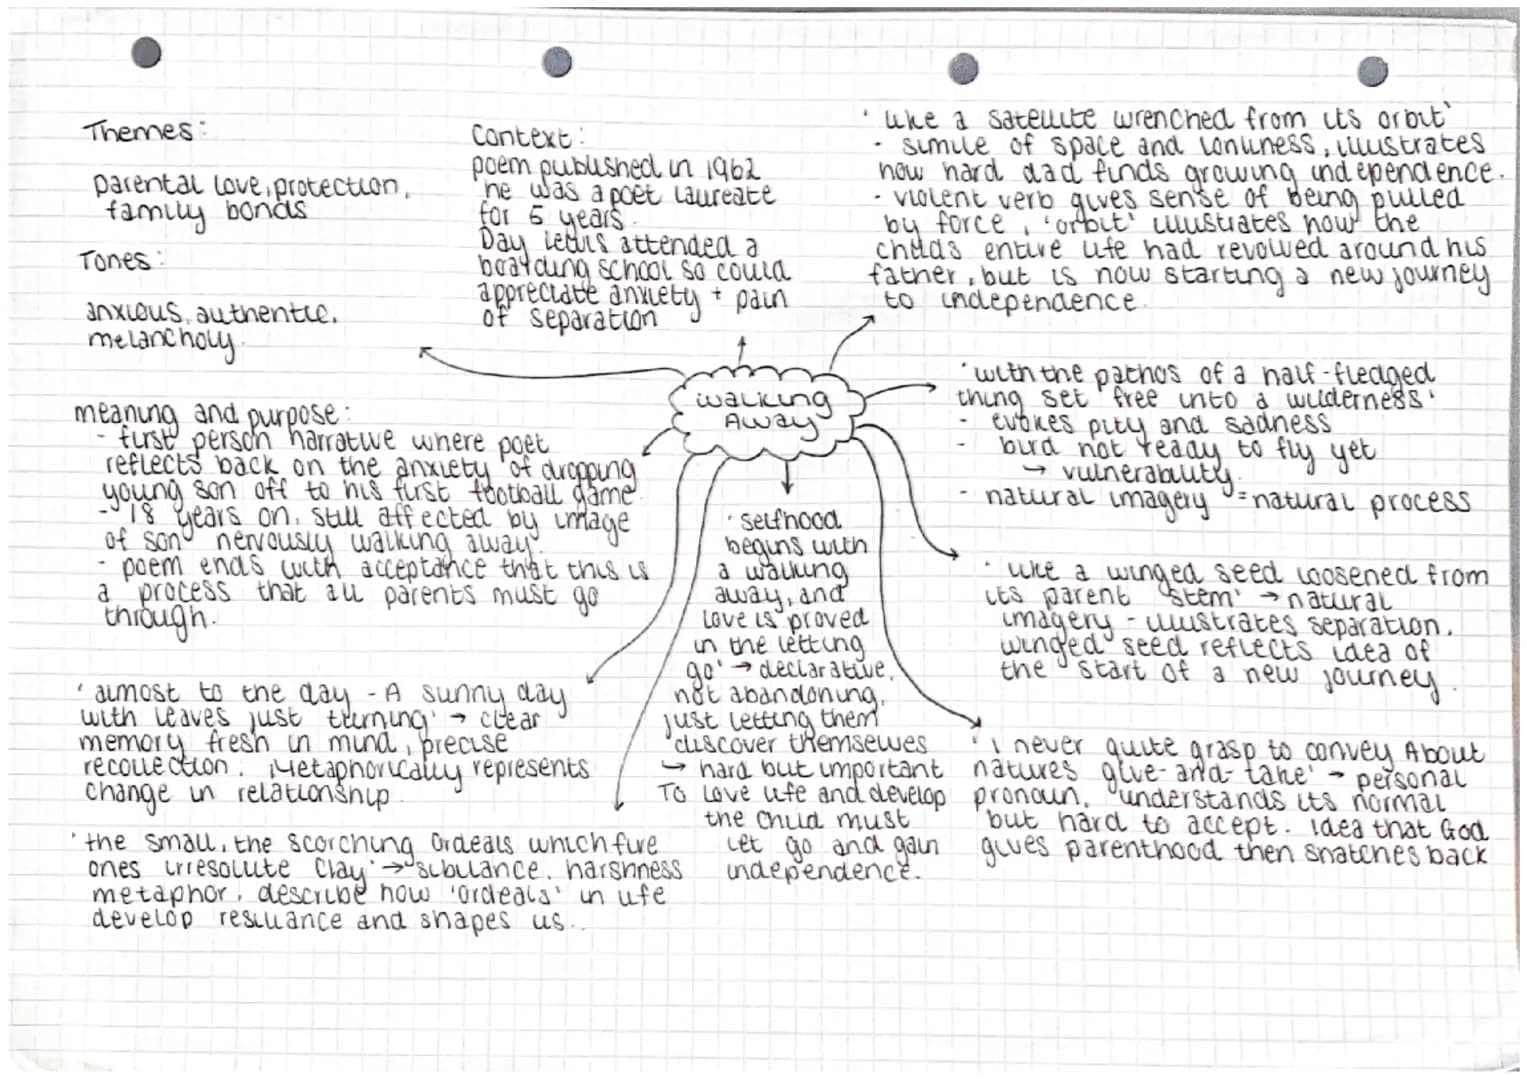 Themes:
parental love, protection,
family bonds
Tones:
anxious, authentic,
melancholy
Context:
poem published in 1962
he was a poet laureate
for 5 years.
Day Lewis attended a
boarding school so could
appreciate anxiety + pain
of separation
'like a satellite wrenched from its orbit'
- simile of space and lonliness, illustrates
how hard dad finds growing independence.
- violent verb gives sense of being pulled
by force, 'orbit' illustrates how the
childs entire life had revolved around his
father, but is now starting a new journey
to independence.
walking
Away
meaning and purpose:
- first person narrative where poet
reflects back on the anxiety of dropping
young son off to his first football game.
- 18 years on, still affected by image
of son nervously walking away.
- poem ends with acceptance that this is
a process that all parents must go
through.
'with the pathos of a half-fledged
thing set free into a wilderness'
- evokes pity and sadness
- bird not ready to fly yet
→ vulnerability.
- natural imagery = natural process
'like a winged seed loosened from
its parent stem' → natural
imagery - illustrates separation.
winged seed reflects idea of
the start of a new journey.
'selfhood
begins with
a walking
away, and
love is proved
in the letting
go' → declarative,
not abandoning,
just letting them
discover themselves
↳ hard but important
To love life and develop
the child must
let go and gain
independence.
'almost to the day - A sunny day
with leaves just turning' → clear
memory fresh in mind, precise
recollection. Metaphorically represents
change in relationship.
'the small, the scorching Ordeals which fire
ones irresolute Clay' → sibilance, harshness
metaphor, describe how 'ordeals' in life
develop resiliance and shapes us..
'i never quite grasp to convey About
natures give-and-take' → personal
pronoun, understands its normal
but hard to accept. Idea that God
gives parenthood then snatches back